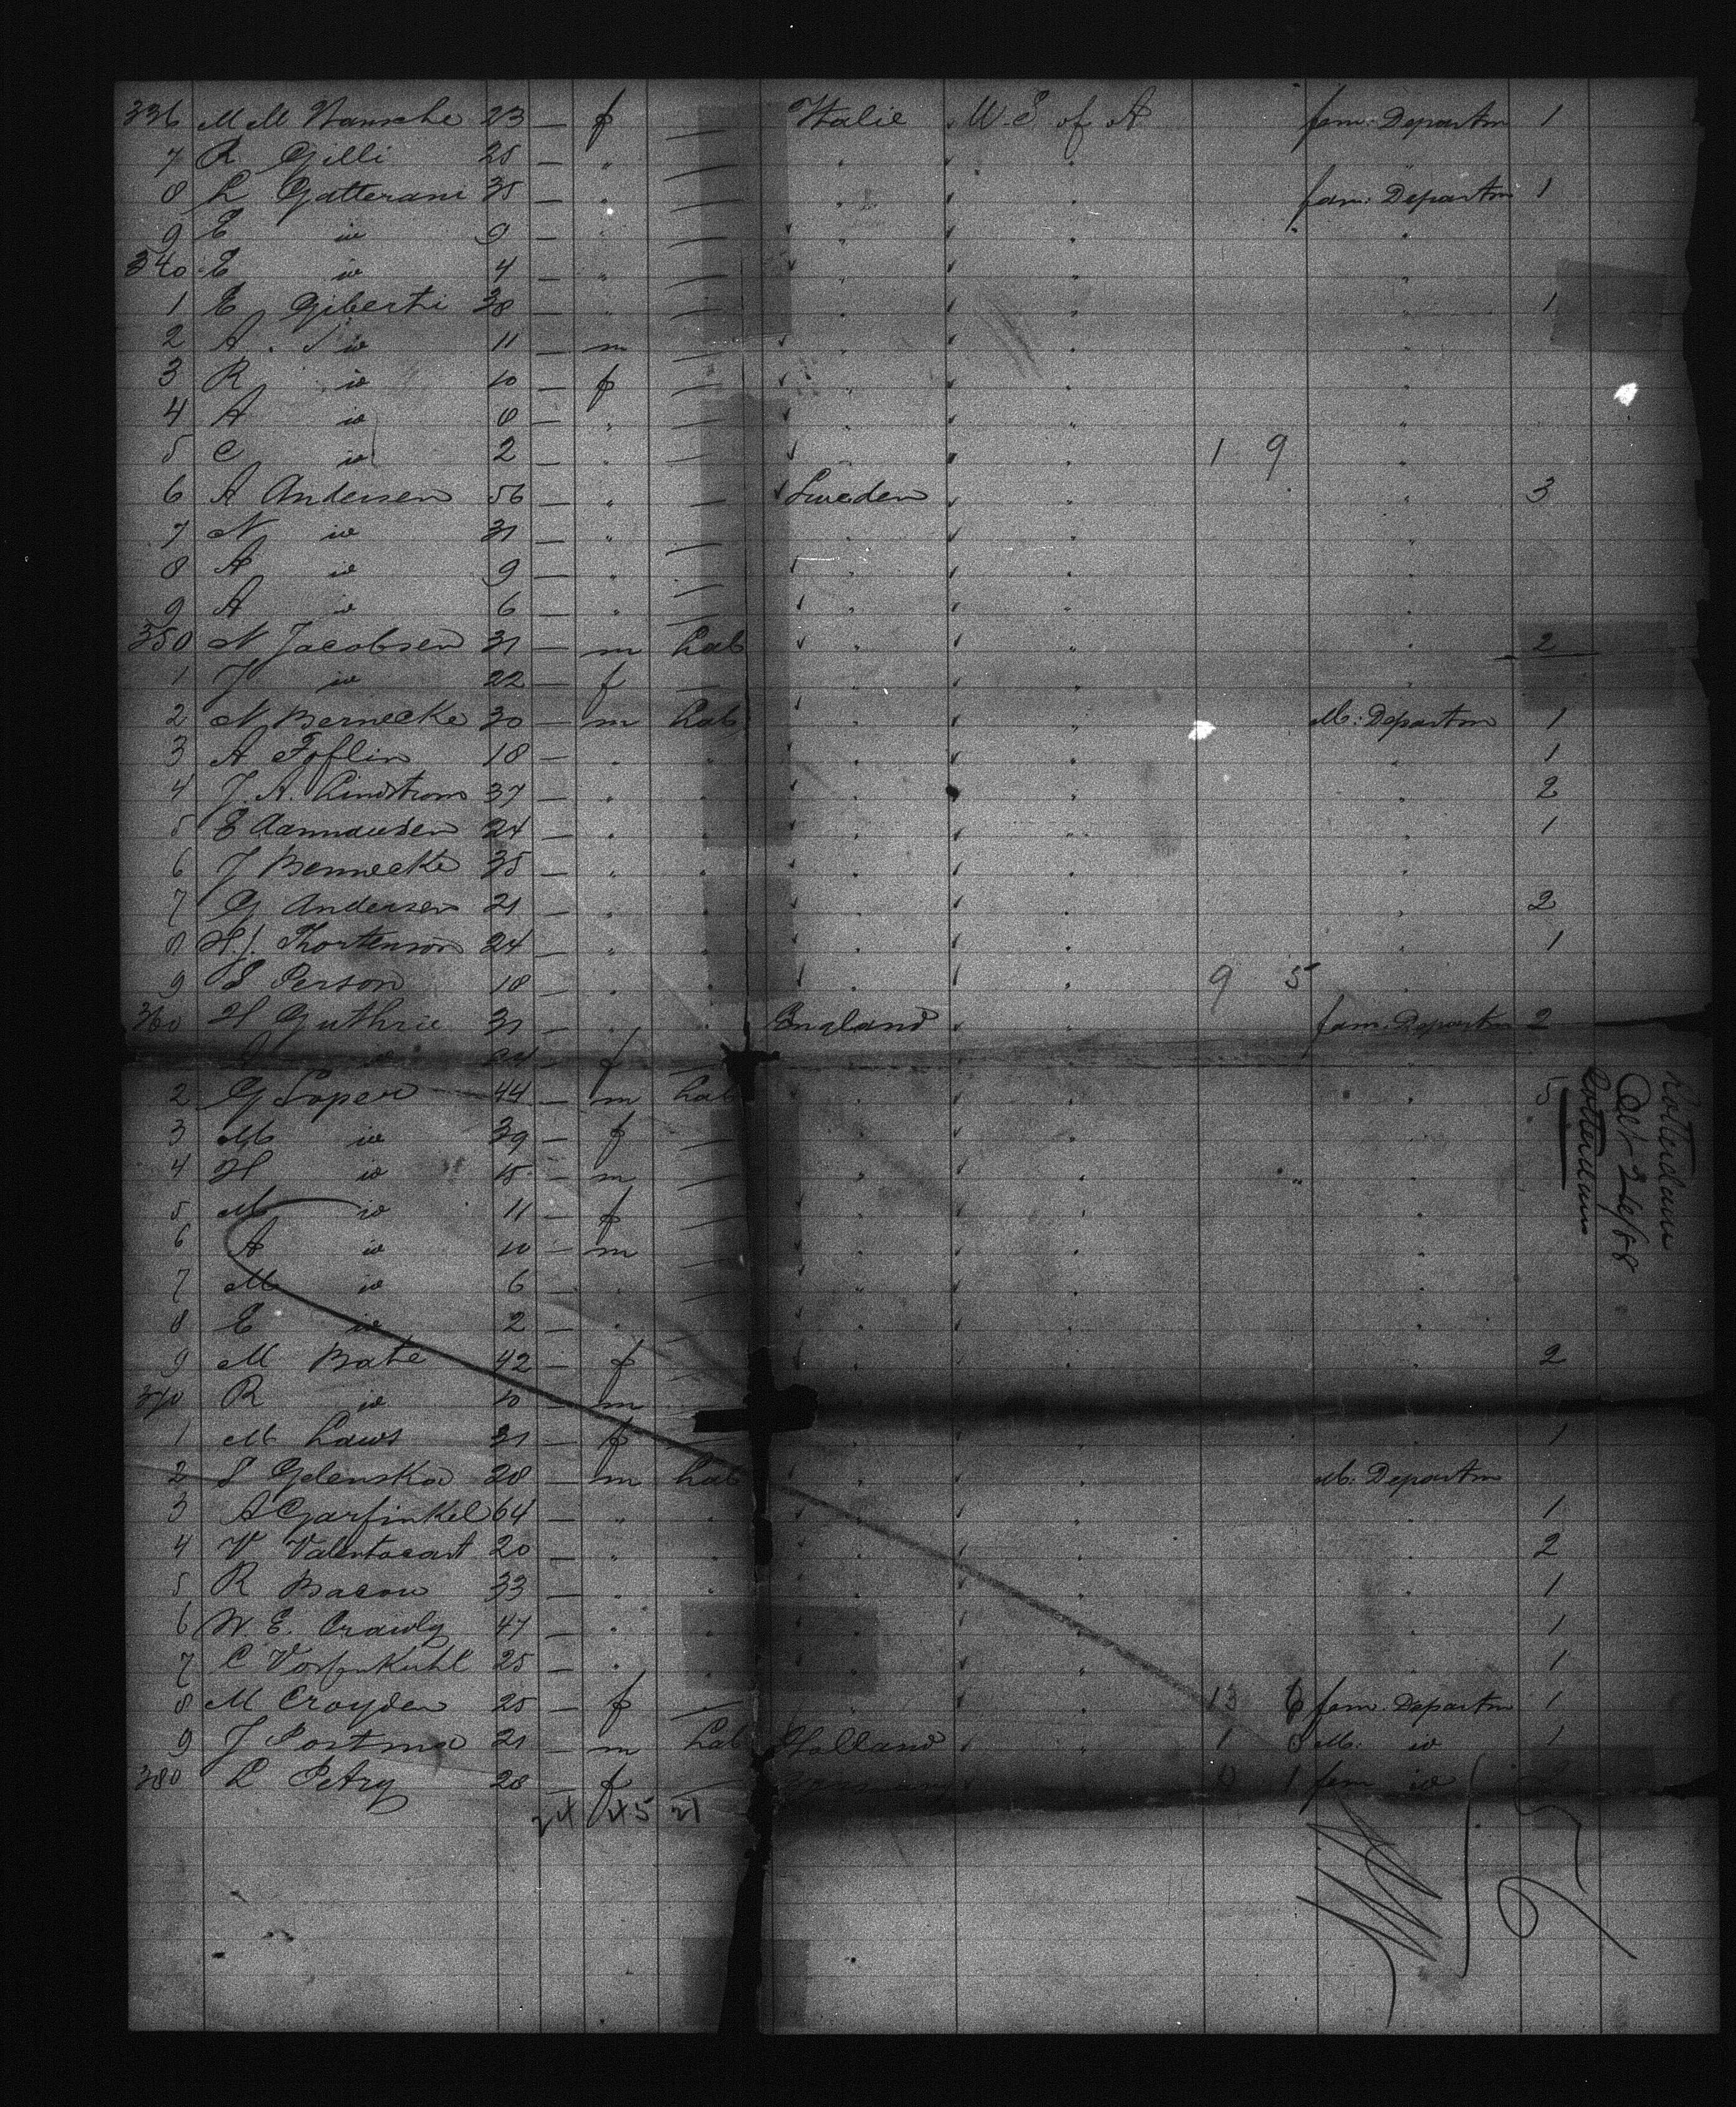 336 M M 23 — f — Italie U. S. of A fam: Departm 1
7 R Gilli 25 — " — " "
8 L Gatterani 35 — " — " " fam: Departm 1
9 E io 9 — " — " " "
340 E io 4 — " — " " "
1 E Giberti 38 — " — " " " 1
2 A. io 11 — m — " " "
3 R io 10 — f — " " "
4 A io 8 — " — " " "
5 C io 2 — " — " " 1 9 "
6 A Andersen 56 — " — Sweden " " 3
7 N io 31 — " — " " "
8 A io 9 — " — " " "
9 A io 6 — " — " " "
350 N Jacobsen 31 — m Lab " " " 2
1 J io 22 — f — " " "
2 N Bernecke 30 — m Lab " " M: Departm 1
3 A 18 — " " " " " 1
4 J. A. Lindstrom 37 — " " " " " 2
5 E 24 — " " " " " 1
6 J Bennecke 35 — " " " " "
7 G Andersen 21 — " " " " " 2
8 H J. Thortenson 24 — " " " " " 1
9 S Person 18 — " " " " 9 5
360 H Guthrie 31 — " " England " fam: Departm 2
io f —
2 G Soper 44 — m Lab " " " 5
3 M io 39 — f — " " "
4 H io 15 — m — " " "
5 M io 11 — f — " " "
6 A io 10 — m — " " "
7 M io 6 — " — " " "
8 E io 2 — " — " " "
9 M Bate 42 — f — " " " 2
370 R io 10 — m —
1 M Laws 31 — f — " " " 1
2 S Gelenskoo 28 — m Lab " " M: Departm
3 A Garfinkel 64 — " " " " " 1
4 V 20 — " " " " " 2
5 R Bacon 33 — " " " " " 1
6 W. E. Crawly 47 — " " " " " 1
7 C 25 — " " " " " 1
8 M Croyden 25 — f — " " 13 6 fam: Departm 1
9 J Postma 21 — m Lab Holland " 1 M: io 1
380 L Petry 28 — f — Germany 1 fem io
24 45 21
Rotterdam
Oct 26/88
Rotterdam